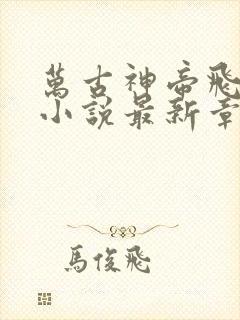 萬古神帝飛
小說最新章
馬俊飛